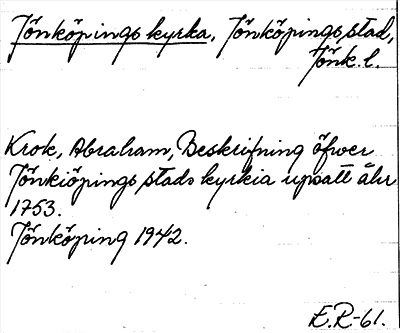 Jönköpings kyrka, Jönköpings stad,
Jönk. l.
Krok, Abraham, Beskrifning öfwer
Jönkiöpings stads kyrkia upsatt åhr
1753.
Jönköping 1942.
E.R-61.